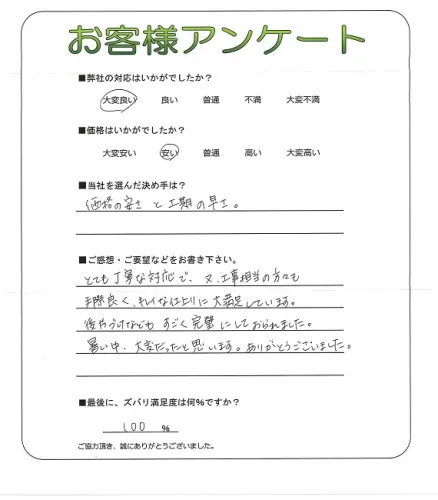 お客様アンケート
■弊社の対応はいかがでしたか？
大変良い 良い 普通 不満 大変不満
■価格はいかがでしたか？
大変安い 安い 普通 高い 大変高い
■当社を選んだ決め手は？
価格の安さ と 工期 の 早さ。
■ご感想・ご要望などをお書き下さい。
とても丁寧な対応で、又、工事担当の方々も
手際良く、キレイな仕上りに大満足しています。
後片づけなども すごく完璧にしておられました。
暑い中、大変だったと思います。ありがとうございました。
■最後に、ズバリ満足度は何%ですか？
100 %
ご協力頂き、誠にありがとうございました。